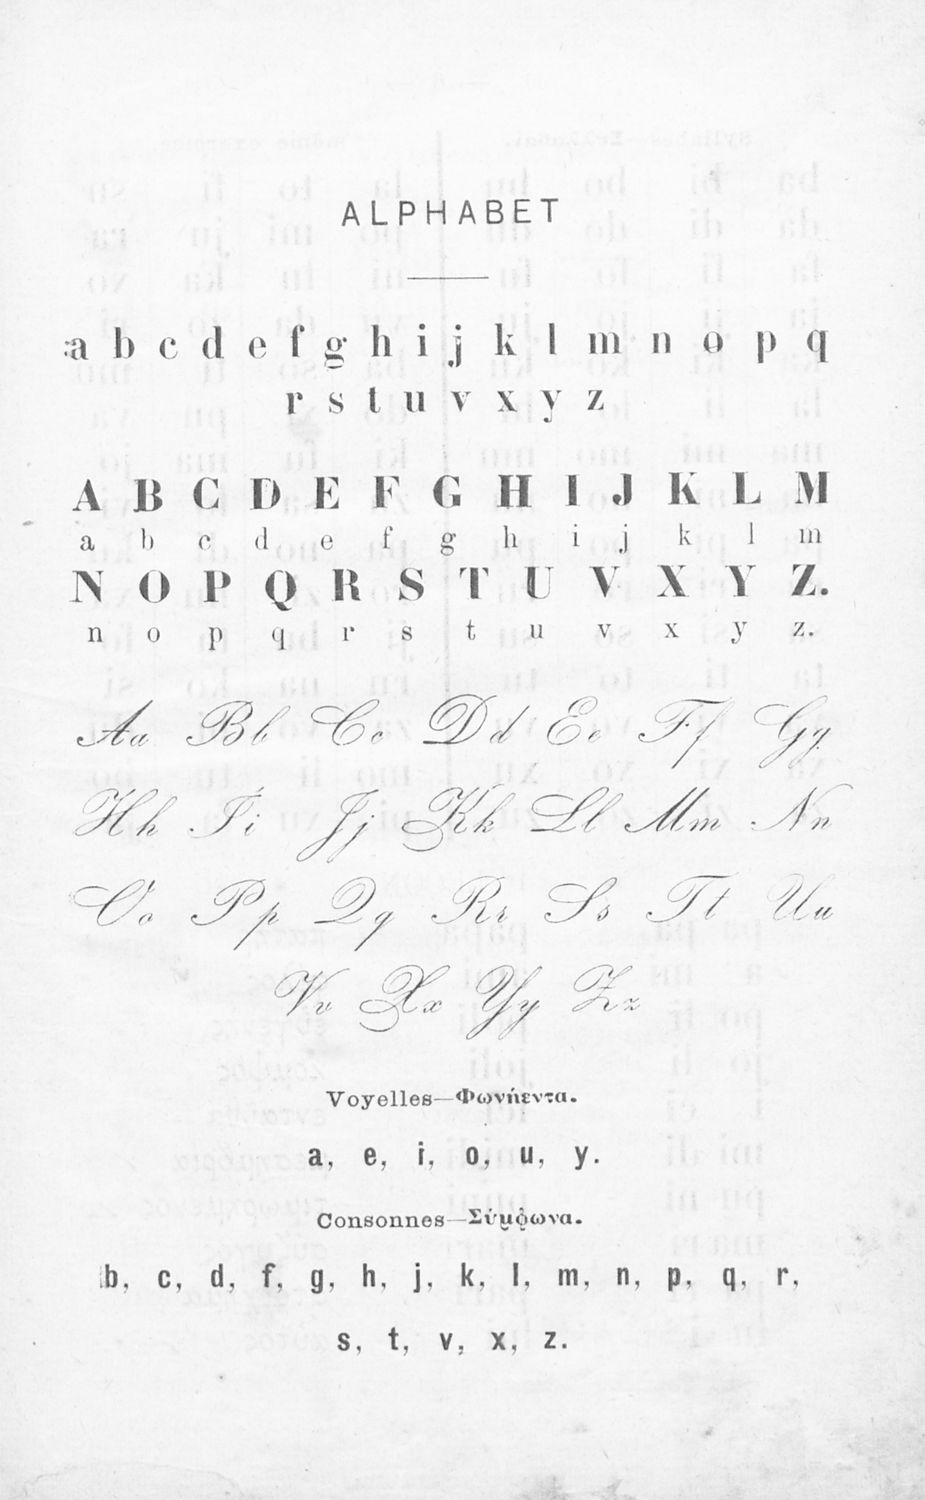 ALPHABET
a b c d e f g h i j k l m n o p q
r s t u v x y z
A B C D E F G H I J K L M
a b c d e f g h i j k l m
N O P Q R S T U V X Y Z.
n o p q r s t u v x y z.
Aa Bb Cc Dd Ee Ff Gg
Hh Ii Jj Kk Ll Mm Nn
Oo Pp Qq Rr Ss Tt Uu
Vv Xx Yy Zz
Voyelles—Φωνήεντα.
a, e, i, o, u, y.
Consonnes—Σύμφωνα.
b, c, d, f, g, h, j, k, l, m, n, p, q, r,
s, t, v, x, z.